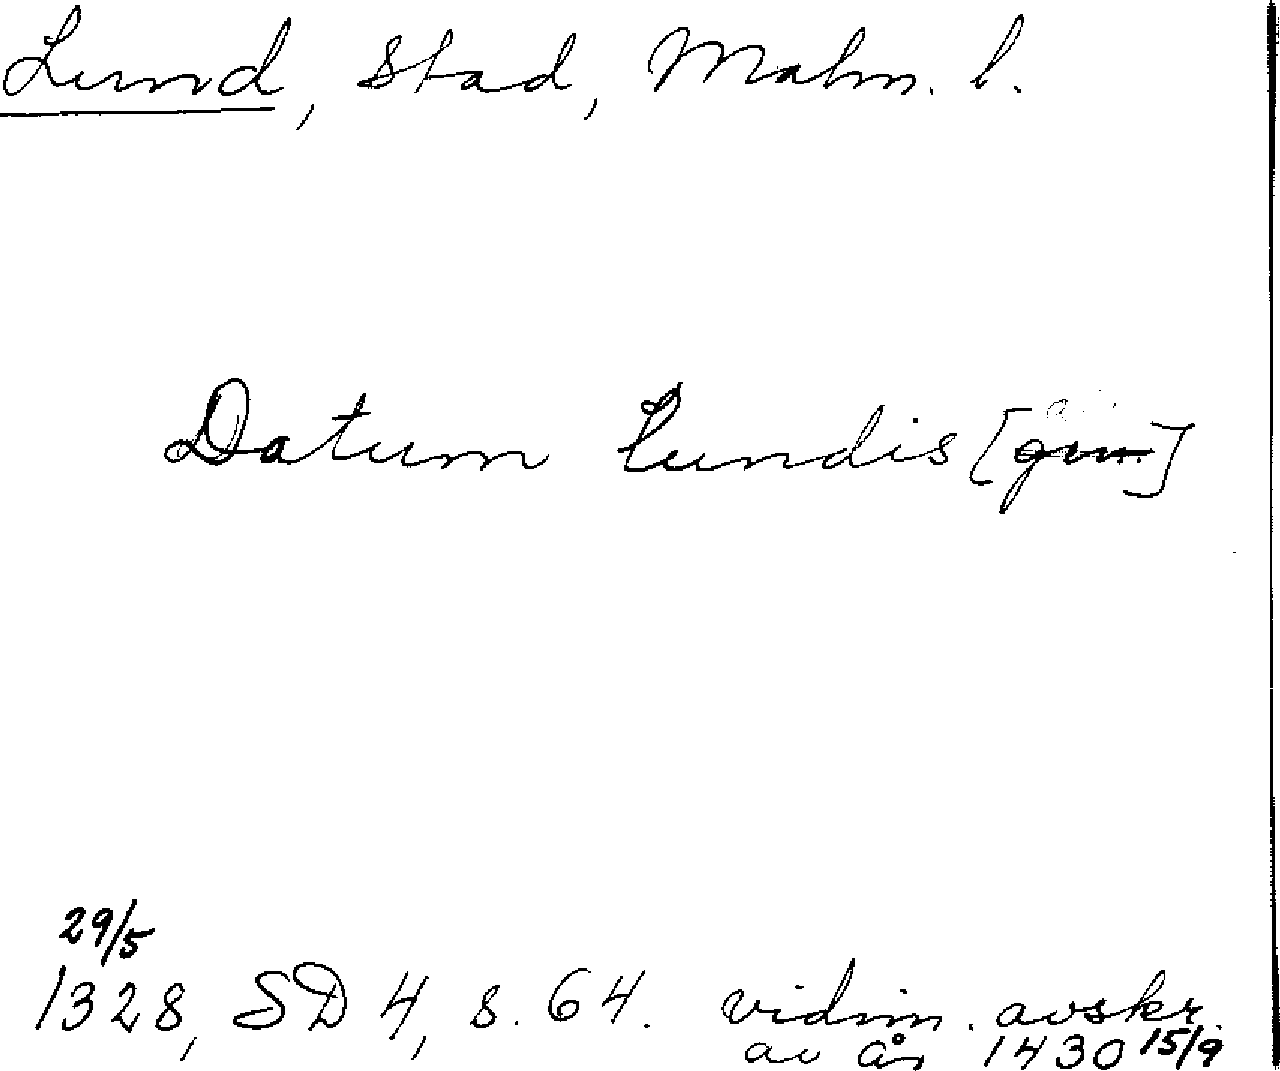 Lund, stad, Malm. l.
Datum Lundis
29/5
1328, SD 4, s. 64. vidim. avskr.
av år 1430 15/9